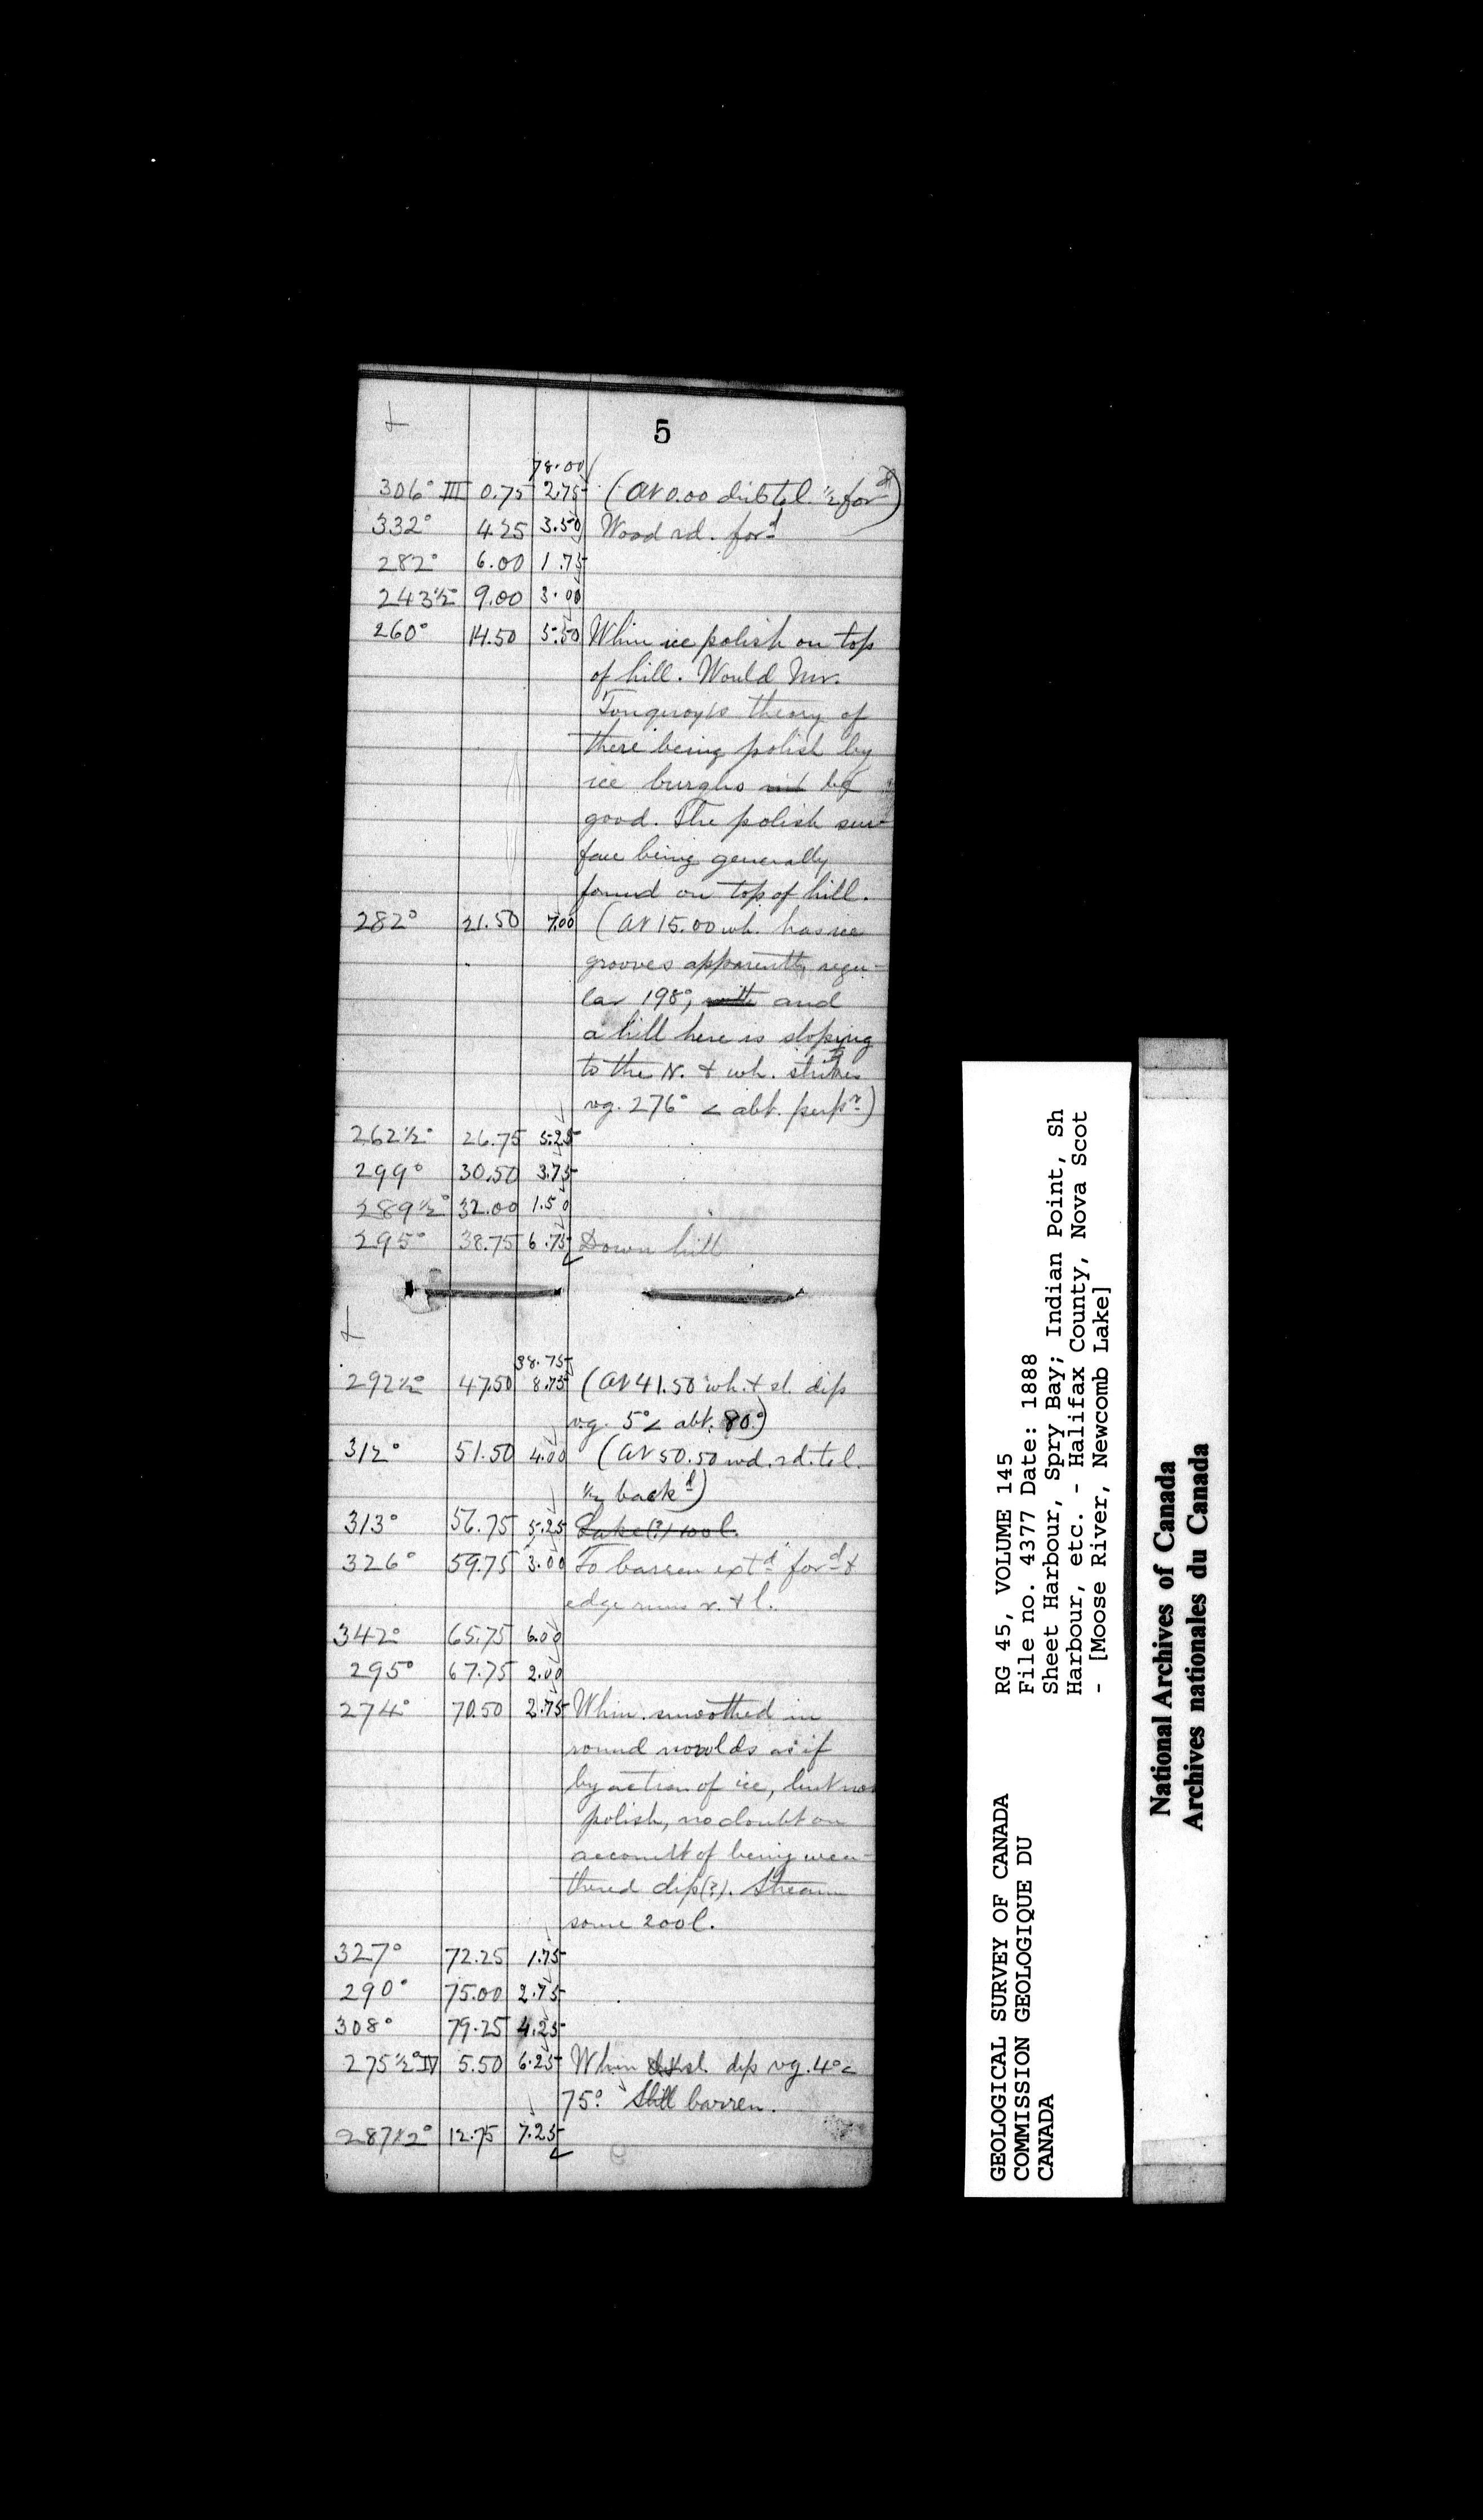 5
78.00
306° III 0.75 2.75 (At 0.00 to l. ½ for^d)
332° 4.25 3.50 Wood rd. for^d
282° 6.00 1.75
243½° 9.00 3.00
260° 14.50 5.50 Whin ice polish on top
of hill. Would Mr.
theory of
there being polish by
ice burghs be
good. The polish sur-
face being generally
found on top of hill.
282° 21.50 7.00 (At 15.00 wh. has ice
grooves apparently regu-
lar 198°, with and
a hill here is sloping
to the N. & wh. strikes
vg. 276° < abt. perp^r)
262½° 26.75 5.25
299° 30.50 3.75
289½° 32.00 1.50
295° 38.75 6.75 Down hill
38.75
292½° 47.50 8.75 (At 41.50 wh. & sl. dip
vg. 5° < abt. 80°)
312° 51.50 4.00 (At 50.50 wd. rd. to l.
½ back^d)
313° 56.75 5.25 Lake(?) 100 l.
326° 59.75 3.00 To barren ext^d for^d &
edge runs r. & l.
342° 65.75 6.00
295° 67.75 2.00
274° 70.50 2.75 Whin smoothed in
round as if
by action of ice, but no
polish, no doubt on
account of being wea-
thered dip(?). Stream
some 200 l.
327° 72.25 1.75
290° 75.00 2.75
308° 79.25 4.25
275½° IV 5.50 6.25 Whin & sl. dip vg. 4° <
75°. Still barren.
287½° 12.75 7.25
GEOLOGICAL SURVEY OF CANADA
COMMISSION GEOLOGIQUE DU
CANADA
RG 45, VOLUME 145
File no. 4377 Date: 1888
Sheet Harbour, Spry Bay; Indian Point, Sh
Harbour, etc. - Halifax County, Nova Scot
- [Moose River, Newcomb Lake]
National Archives of Canada
Archives nationales du Canada